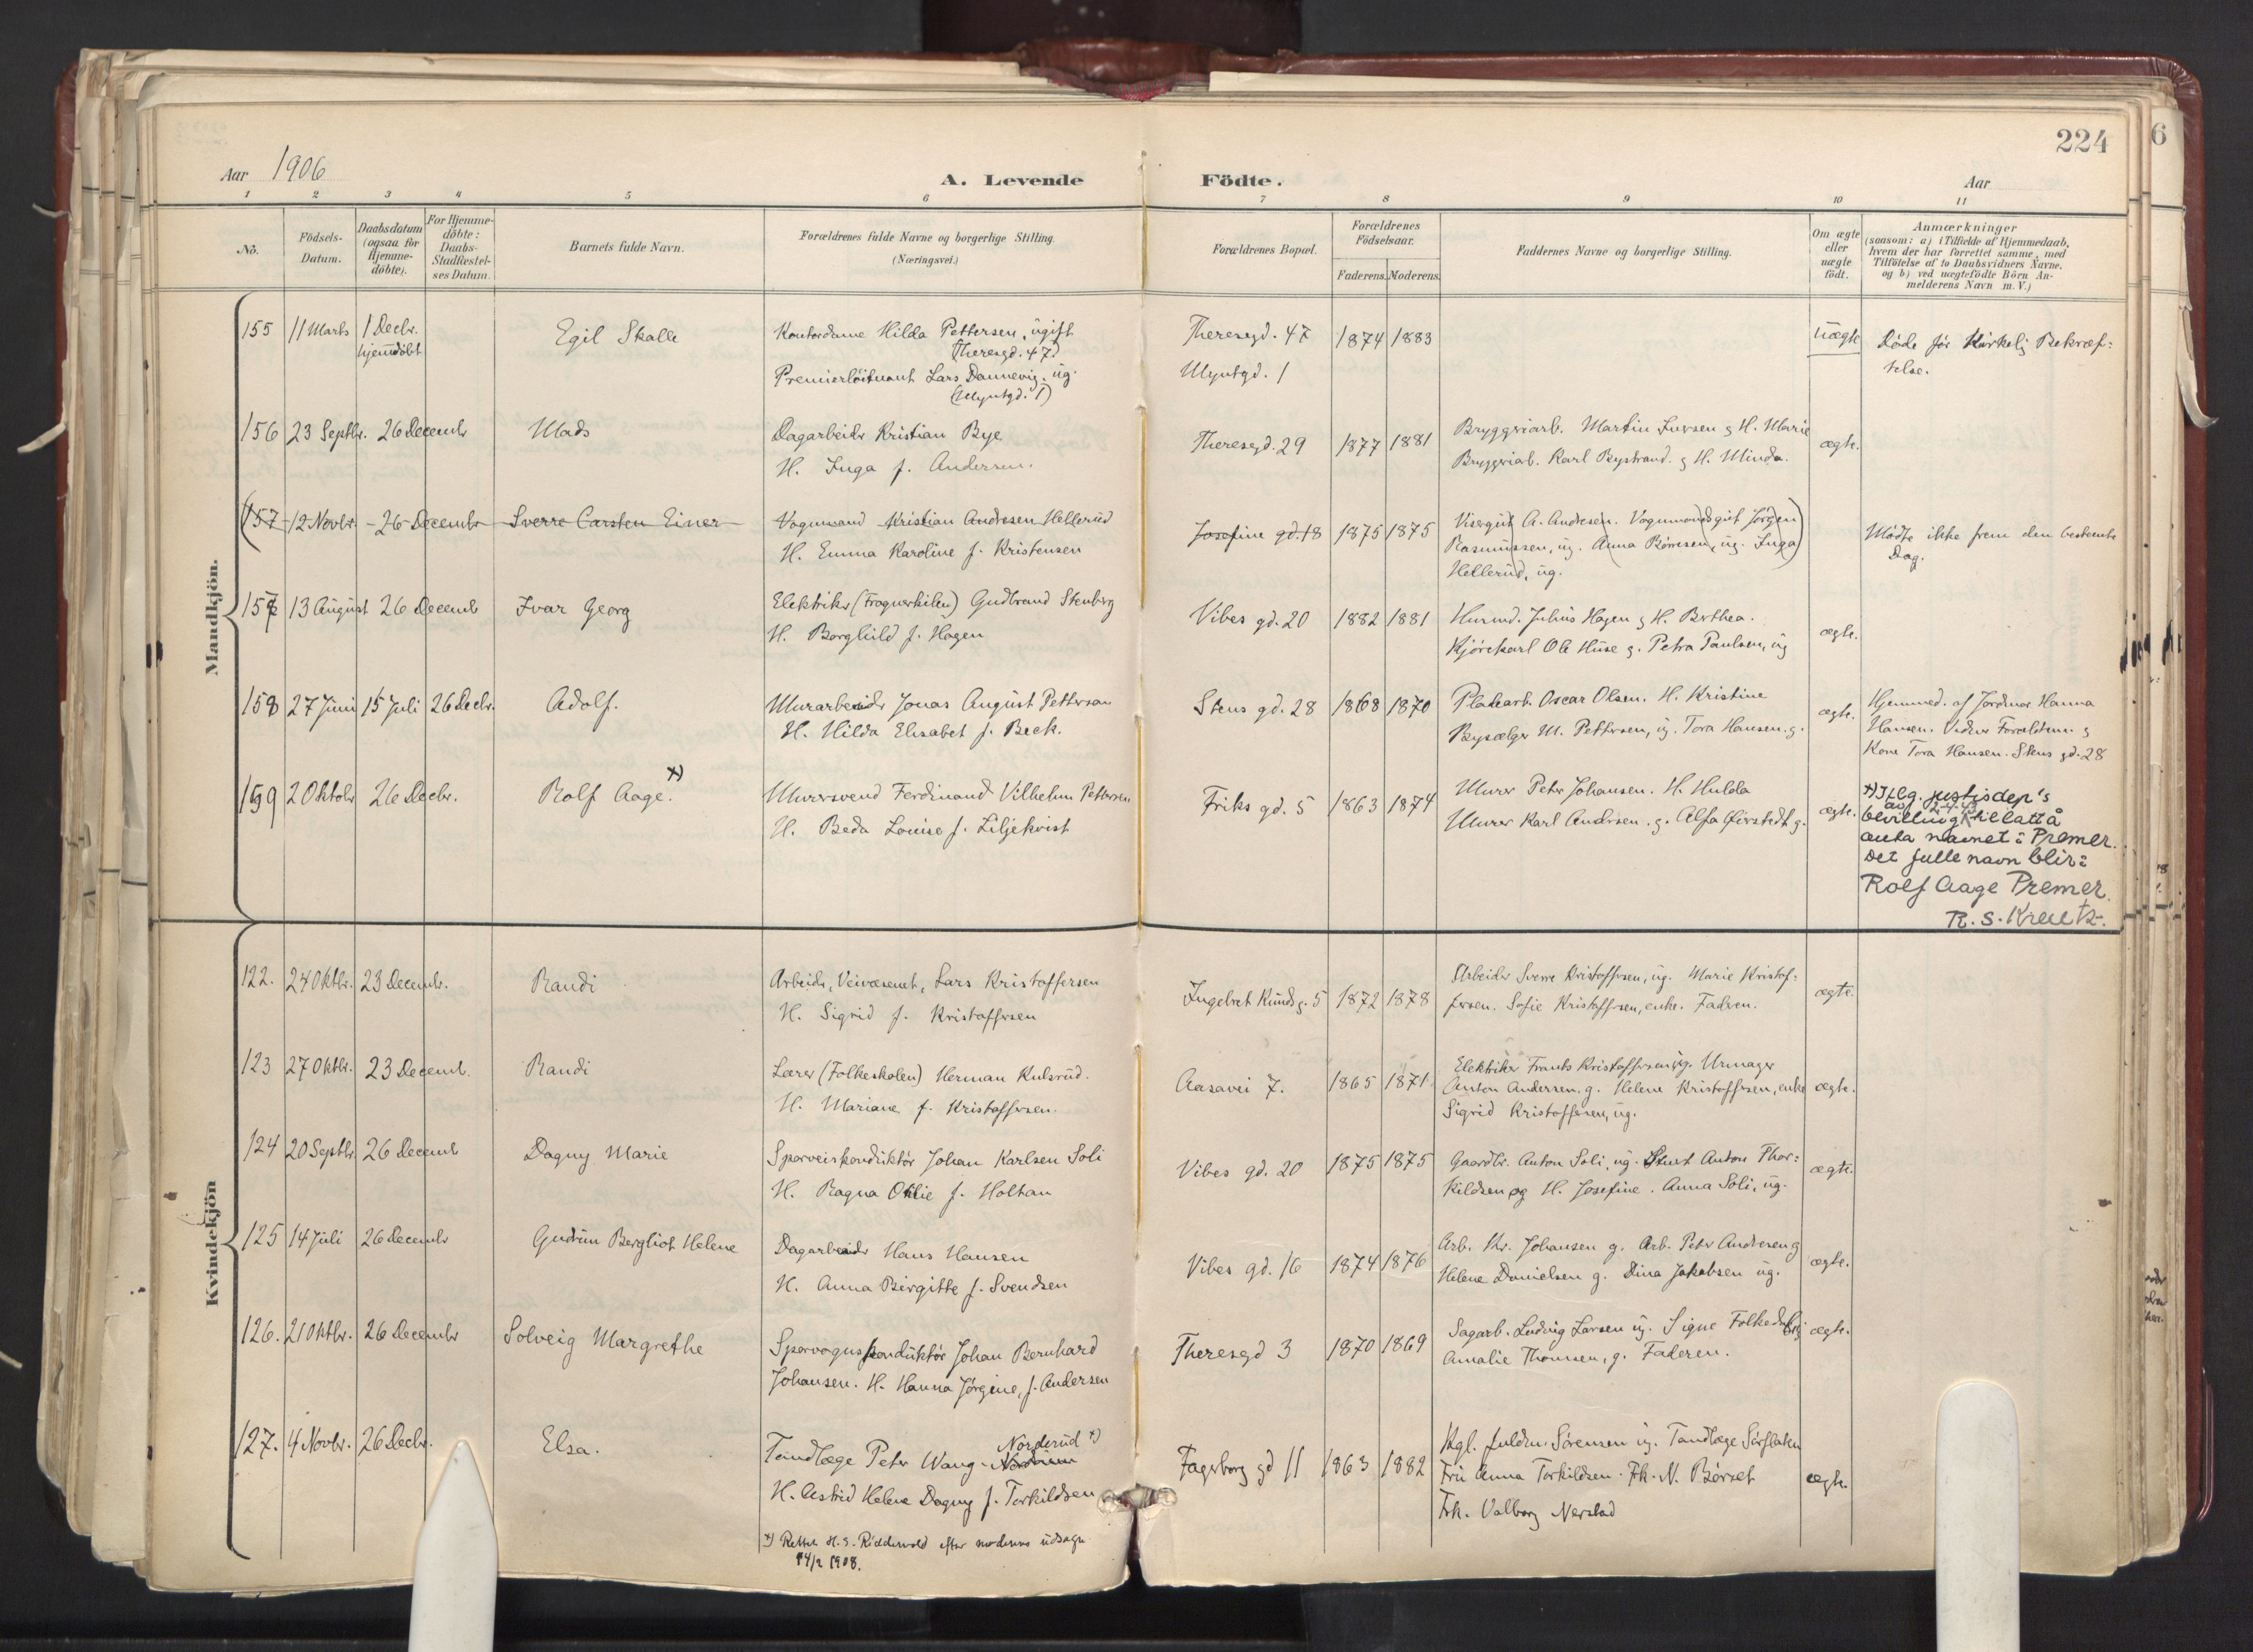 224
6
Aar 1906
A. Levende Födte.
Aar
1 2 3 4 5 6 7 8 9 10 11
No.
Födsels-
Datum.
Daabsdatum
(ogsaa for
Hjemme-
döbte).
For Hjemme-
döbte:
Daabs-
Stadfæstel-
ses Datum.
Barnets fulde Navn.
Forældrenes fulde Navne og borgerlige Stilling
(Næringsvei.)
Forældrenes Bopæl.
Forældrenes
Födselsaar.
Faderens. Moderens.
Faddernes Navne og borgerlige Stilling.
Om ægte
eller
uægte
födt.
Anmærkninger
(saasom: a) i Tilfælde af Hjemmedaab,
hvem der har forrettet samme, med
Tilföielse af to Daabsvidners Navne,
og b) ved uægtefödte Börn An-
melderens Navn m.V.)
Mandkjön.
155 11 Marts 1 Decbr. Egil Skalle Kontordame Hilda Pettersen, ugift Theresegd. 47 1874 1883 uægte Døde før Kirkelig Bekræf=
hjemdøbt (Theresgd. 47) telse.
Premierløitnant Lars Dannevig. ug. Myntgd. 1
(Myntgd. 1)
156 23 Septbr. 26 Decembr Mads Dagarbeider Kristian Bye Theresegd. 29 1877 1881 Bryggeriarb. Martin Iversen g H. Marie ægte.
H. Inga f. Andersen. Bryggeriarb. Karl Bystrand. g H. Minda.
157 12 Novbr. 26 Decembr Sverre Carsten Einer Vognmand Kristian Andresen Hellerud Josefine gd. 18 1875 1875 Visergut A. Andresen. Vognmandsgut Jørgen Mødte ikke frem den bestemte
H. Emma Karoline f. Kristensen Rasmussen, ug. Anna Børresen, ug. Inga Dag.
Hellerud, ug.
157 13 August 26 Decemb Ivar Georg Elektriker (Frognerkilen) Gudbrand Stenberg Vibes gd. 20 1882 1881 Murmd. Julius Hagen g H. Berthea. ægte.
H. Borghild f. Hagen Kjørekarl Ole Huse g. Petra Paulsen, ug
158 27 Juni 15 Juli 26 Decbr. Adolf. Murarbeider Jonas August Petterson Stens gd. 28 1868 1870 Platearb. Oscar Olsen. H. Kristine ægte. Hjemmed. af Jordmor Hanna
H. Hilda Elisabet f. Beck. Bysælger M. Pettersen, ug. Tora Hansen. g. Hansen. Vidner Forældrene g
Kone Tora Hansen. Stens gd. 28
159 2 Oktobr 26 Decbr. Rolf Aage. x) Murersvend Ferdinand Vilhelm Pettersen Friks gd. 5 1863 1874 Murer Peter Johansen. H. Hulda ægte. x) I flg. justisdep's
H. Beda Louise f. Liljekvist Murer Karl Andersen. g. Alfa Ørstedt g.
bevilling av 2-4-43 tillatt å
anta navnet: Premer.
Det fulle navn blir:
Rolf Aage Premer.
R. S. Kreutz.
Kvindekjön
122. 24 Oktbr. 23 Decembr. Randi Arbeider, Veivæsenet, Lars Kristoffersen Ingebret Kunds g. 5 1872 1878 Arbeider Sverre Kristoffersen, ug. Marie Kristof= ægte.
H. Sigrid f. Kristoffersen fersen. Sofie Kristoffersen, enke. Faderen.
123 27 Oktbr. 23 Decemb. Randi Lærer (Folkeskolen) Herman Kulsrud. Aasavei 7. 1865 1871 Elektriker Frants Kristoffersen, ug. Urmager
H. Mariane f. Kristoffersen. Anton Andersen. g. Helene Kristoffersen, enke ægte.
Sigrid Kristoffersen, ug.
124 20 Septbr. 26 Decemb Dagny Marie Sporveiskonduktør Johan Karlsen Soli Vibes gd. 20 1875 1875 Gaardbr. Anton Soli, ug. Anton Thor= ægte.
H. Ragna Otilie f. Holtan kildsen og H. Josefine. Anna Soli, ug.
125 14 Juli 26 Decembr Gudrun Bergliot Helene Dagarbeider Hans Hansen Vibes gd. 16 1874 1876 Arb. Kr. Johansen g. Arb. Peter Andresen g ægte.
H. Anna Birgitte f. Svendsen Helene Danielsen g. Dina Jakobsen ug.
126. 21 Oktbr. 26 Decembr Solveig Margrethe Sporvognskonduktør Johan Bernhard Theresegd 3 1870 1869 Sagarb. Ludvig Larsen ug. Signe ægte.
Johansen. H. Hanna Jørgine, f. Andersen Amalie Thomsen, g. Faderen.
127. 4 Novbr. 26 Decbr. Elsa. Tandlæge Peter Wang- Norderud x) Fagerborg gd 11 1863 1882 Kgl. fuldm. Sørensen ug. Tandlæge Sørflaten
H. Astrid Helene Dagny f. Torkildsen Fru Anna Torkildsen. Frk. N. Børset ægte.
Frk. Valborg Nerstad
x) Rettet H. S. Ridderwold efter moderens udsagn
14/2 1908.